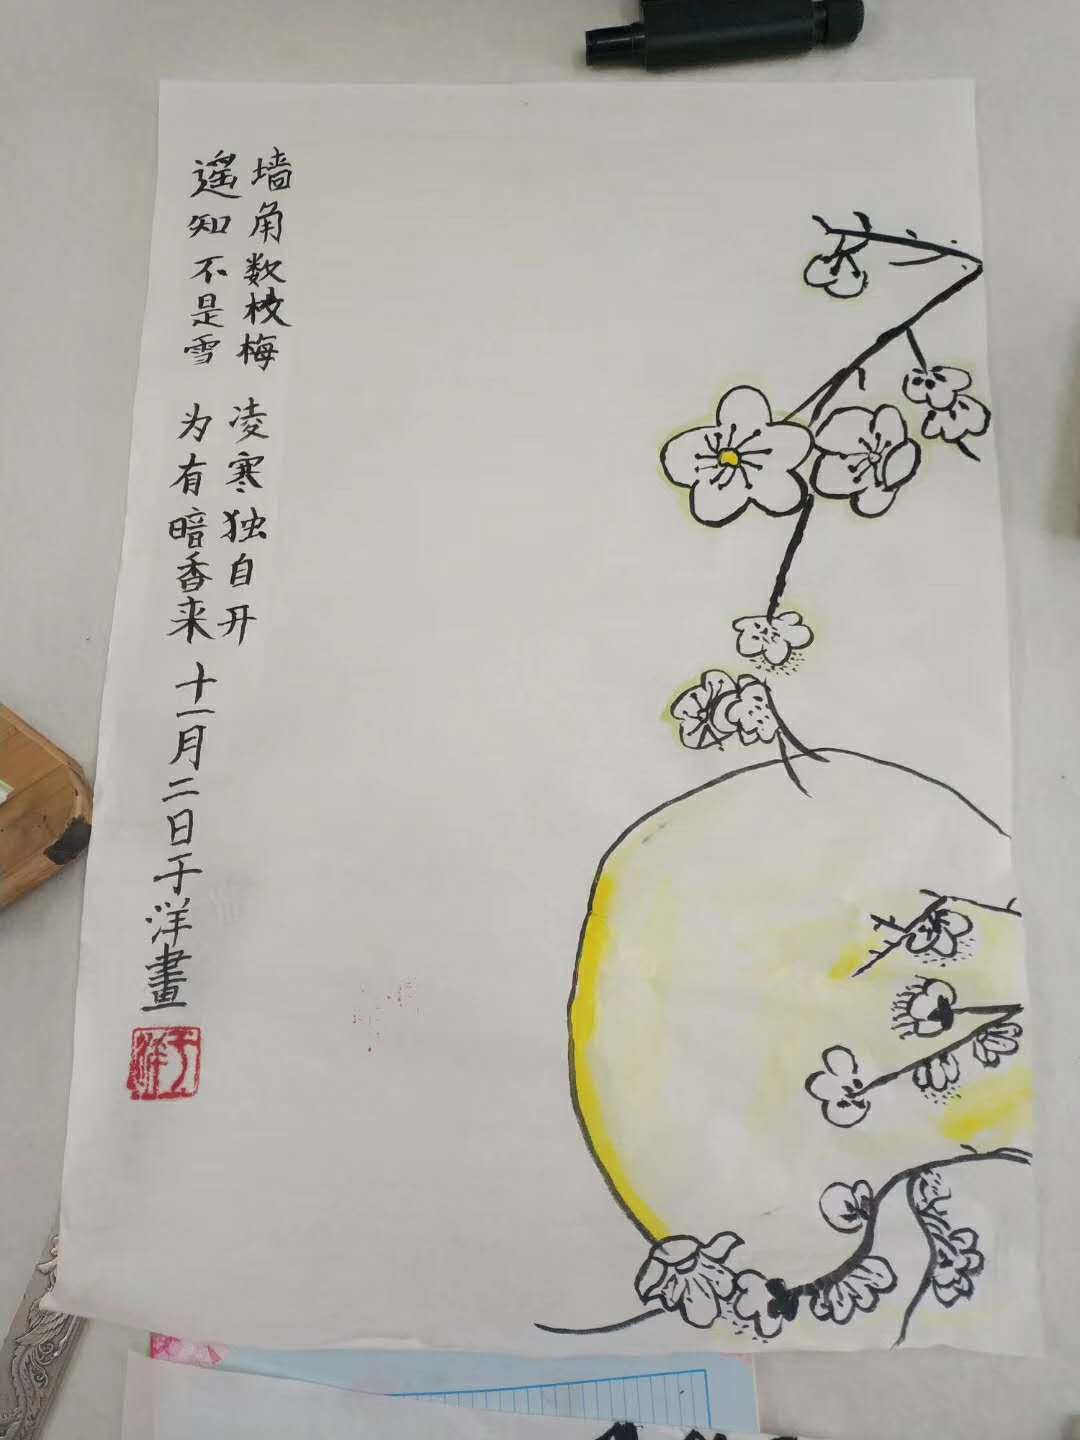 墙角数枝梅 凌寒独自开
遥知不是雪 为有暗香来 十一月二日于洋畫
于洋